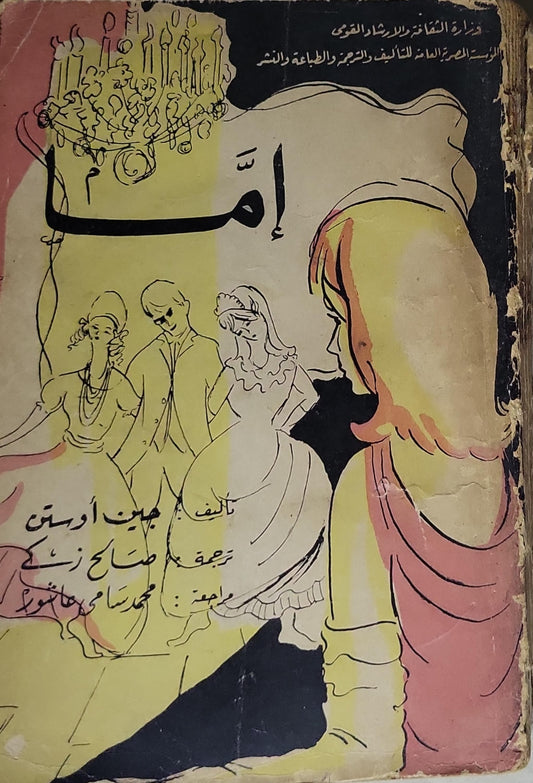 وزارة الثقافة والارشاد القومى
المؤسسة المصرية العامة للتأليف والترجمة والطباعة والنشر
إمَّا
تأليف : جين أوستن
ترجمة : صالح زكى
مراجعة : محمد سامى عاشور